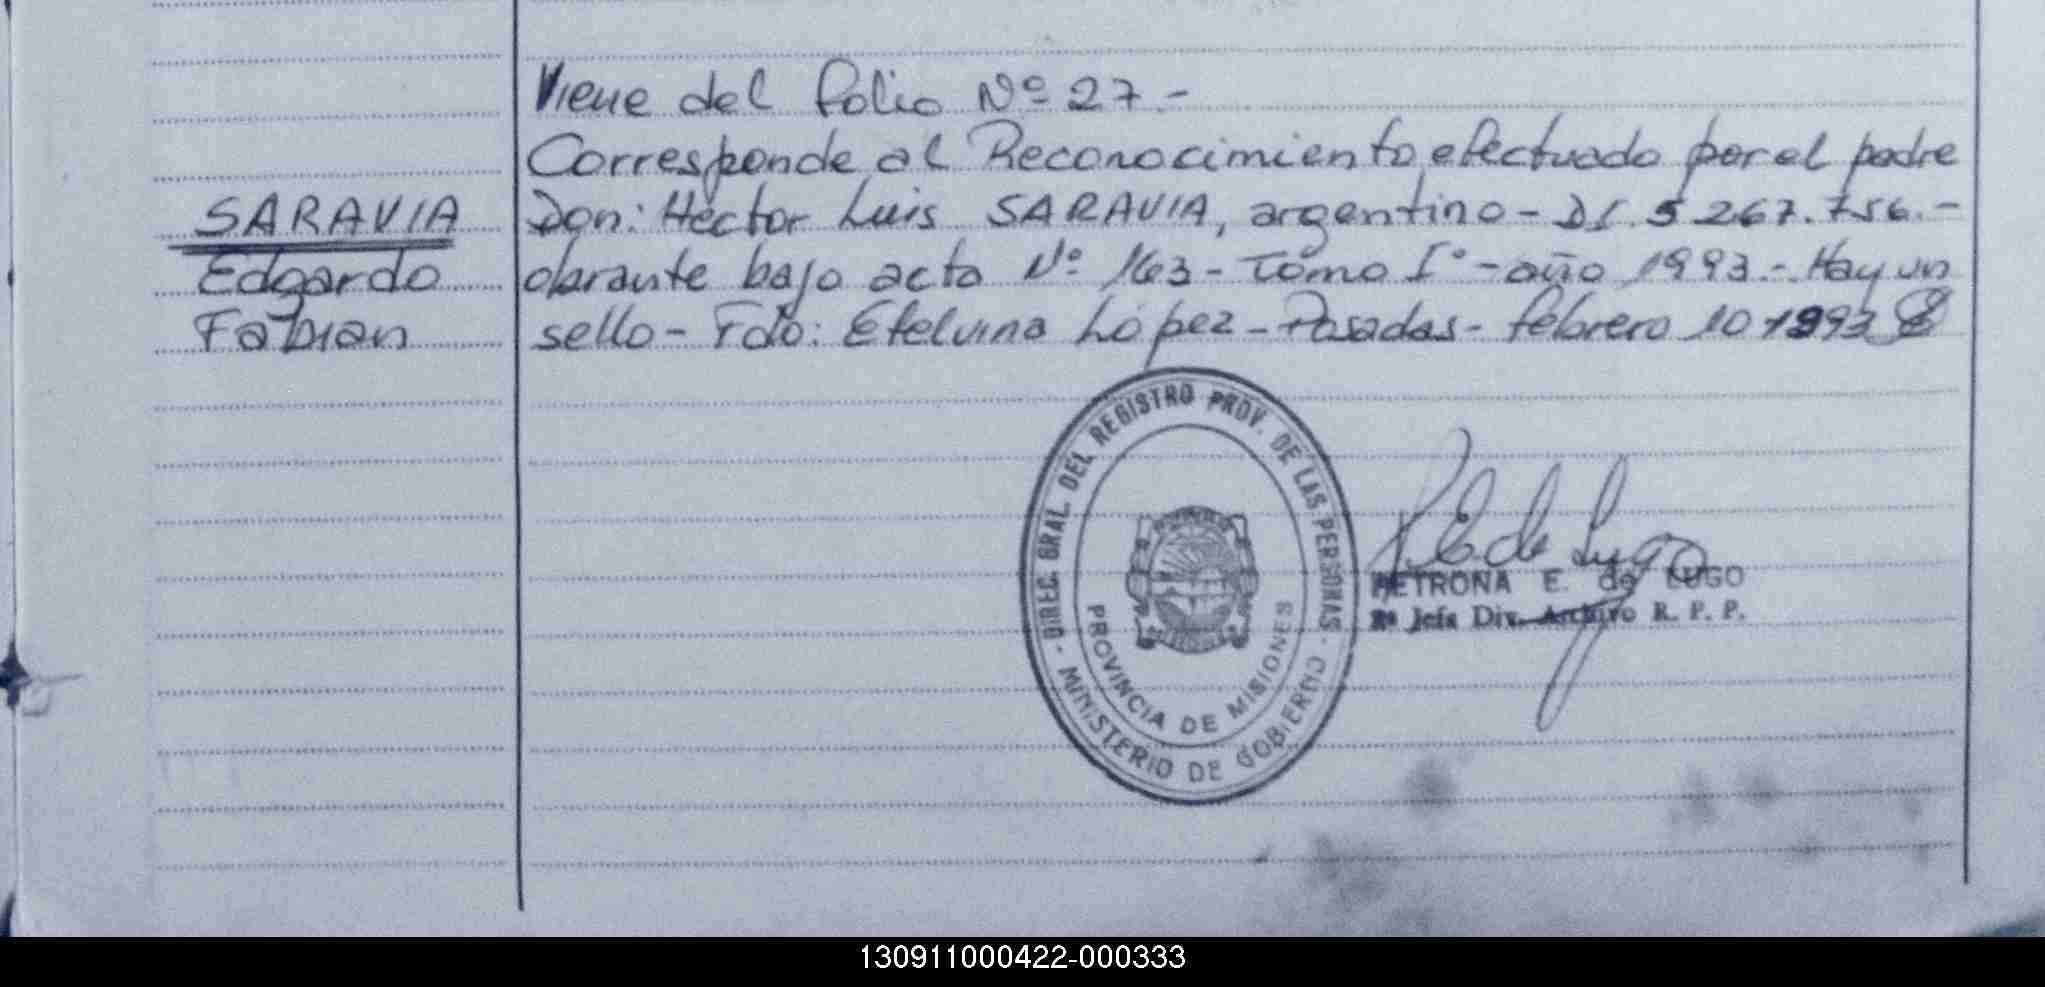 Viene del folio Nº 27.-
Corresponde al Reconocimiento efectuado por el padre
SARAVIA
Don: Héctor Luis SARAVIA, argentino - DI. 5 267.756.-
Edgardo
obrante bajo acta Nº 163 - Tomo Iº - año 1993.- Hay un
Fabian
sello - Fdo: Etelvina López - Posadas - febrero 10 1993
DIREC. GRAL. DEL REGISTRO PROV. DE LAS PERSONAS -
- MINISTERIO DE GOBIERNO
PROVINCIA DE MISIONES
P E de Lugo
PETRONA E. de LUGO
2ª Jefa Div. Archivo R. P. P.
130911000422-000333